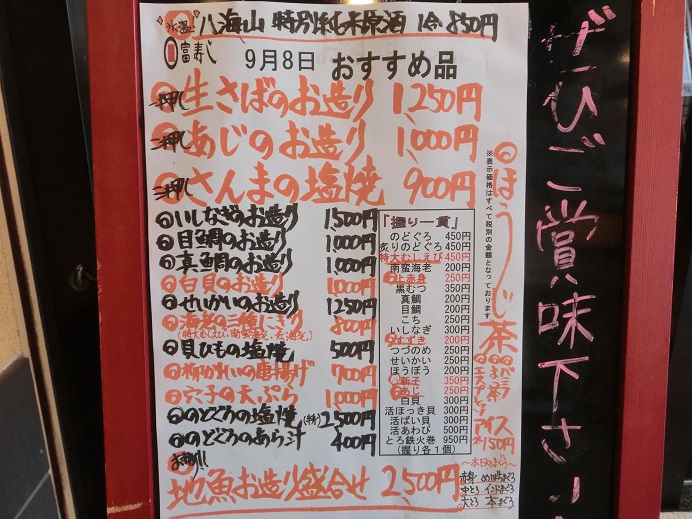 八海山 特別純米原酒 1合 850円
富寿し
9月8日 おすすめ品
一押し 生さばのお造り 1,250円
二押し あじのお造り 1,000円
三押し さんまの塩焼 900円
いしなぎのお造り 1,500円
目鯛のお造り 1,000円
真鯛のお造り 1,000円
白貝のお造り 1,000円
せいかいのお造り 1250円
海老の三種にぎり 800円
貝ひもの塩焼 500円
柳かれいの唐揚げ 700円
穴子の天ぷら 1,000円
のどぐろの塩焼 2,500円
のどぐろのあら汁 400円
地魚お造り盛合せ 2,500円
「握り一貫」
のどぐろ 450円
炙りのどぐろ 450円
特大むしえび 450円
南蛮海老 200円
上赤身 250円
黒むつ 350円
真鯛 200円
目鯛 200円
こち 250円
いしなぎ 300円
すずき 200円
つづのめ 250円
せいかい 250円
ほうぼう 200円
新子 350円
あじ 250円
白貝 300円
活ほっき貝 300円
活ばい貝 300円
活あわび 500円
とろ鉄火巻 950円
(握り各1個)
※表示価格はすべて税別の金額となっております
ほうじ茶
アイス
150円
赤身 めばちまぐろ
中とろ インドまぐろ
大とろ 本まぐろ
ぜひご賞味下さい